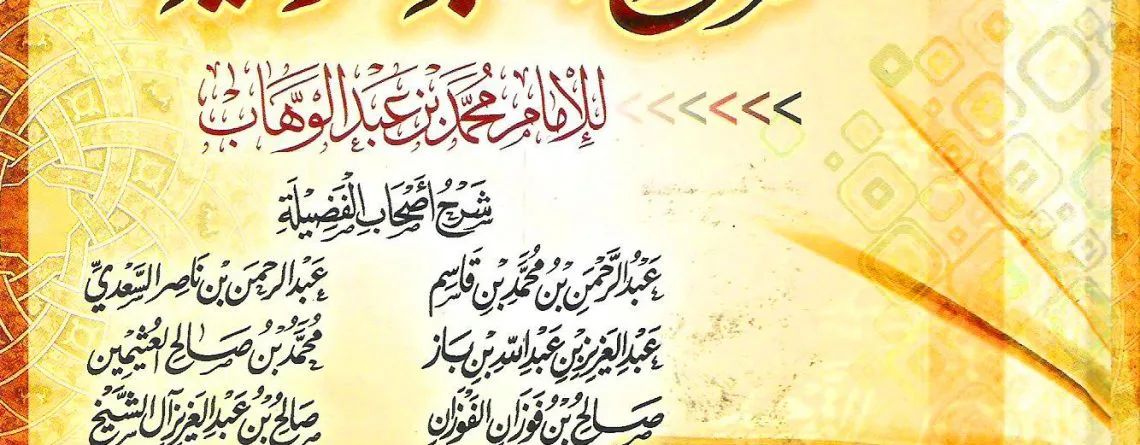 للإمام محمد بن عبد الوهاب
شَرْحُ أَصْحَابِ الْفَضِيْلَةِ
عَبْدُ الرَّحْمنِ بْنُ مُحَمَّدِ بْنِ قَاسِم عَبْدُ الرحمن بن نَاصر السَّعْديِّ
عَبْدِ العَزِيزِ بْنِ عَبْدِ اللهِ بْنِ بَاز مُحَمَّدُ بْنُ صَالِح العُثيمِين
صَالِحُ بْنُ فَوْزَان الفَوْزَانِ صَالِحُ بْنُ عَبْدِ العَزِيز آل الشَّيْخ